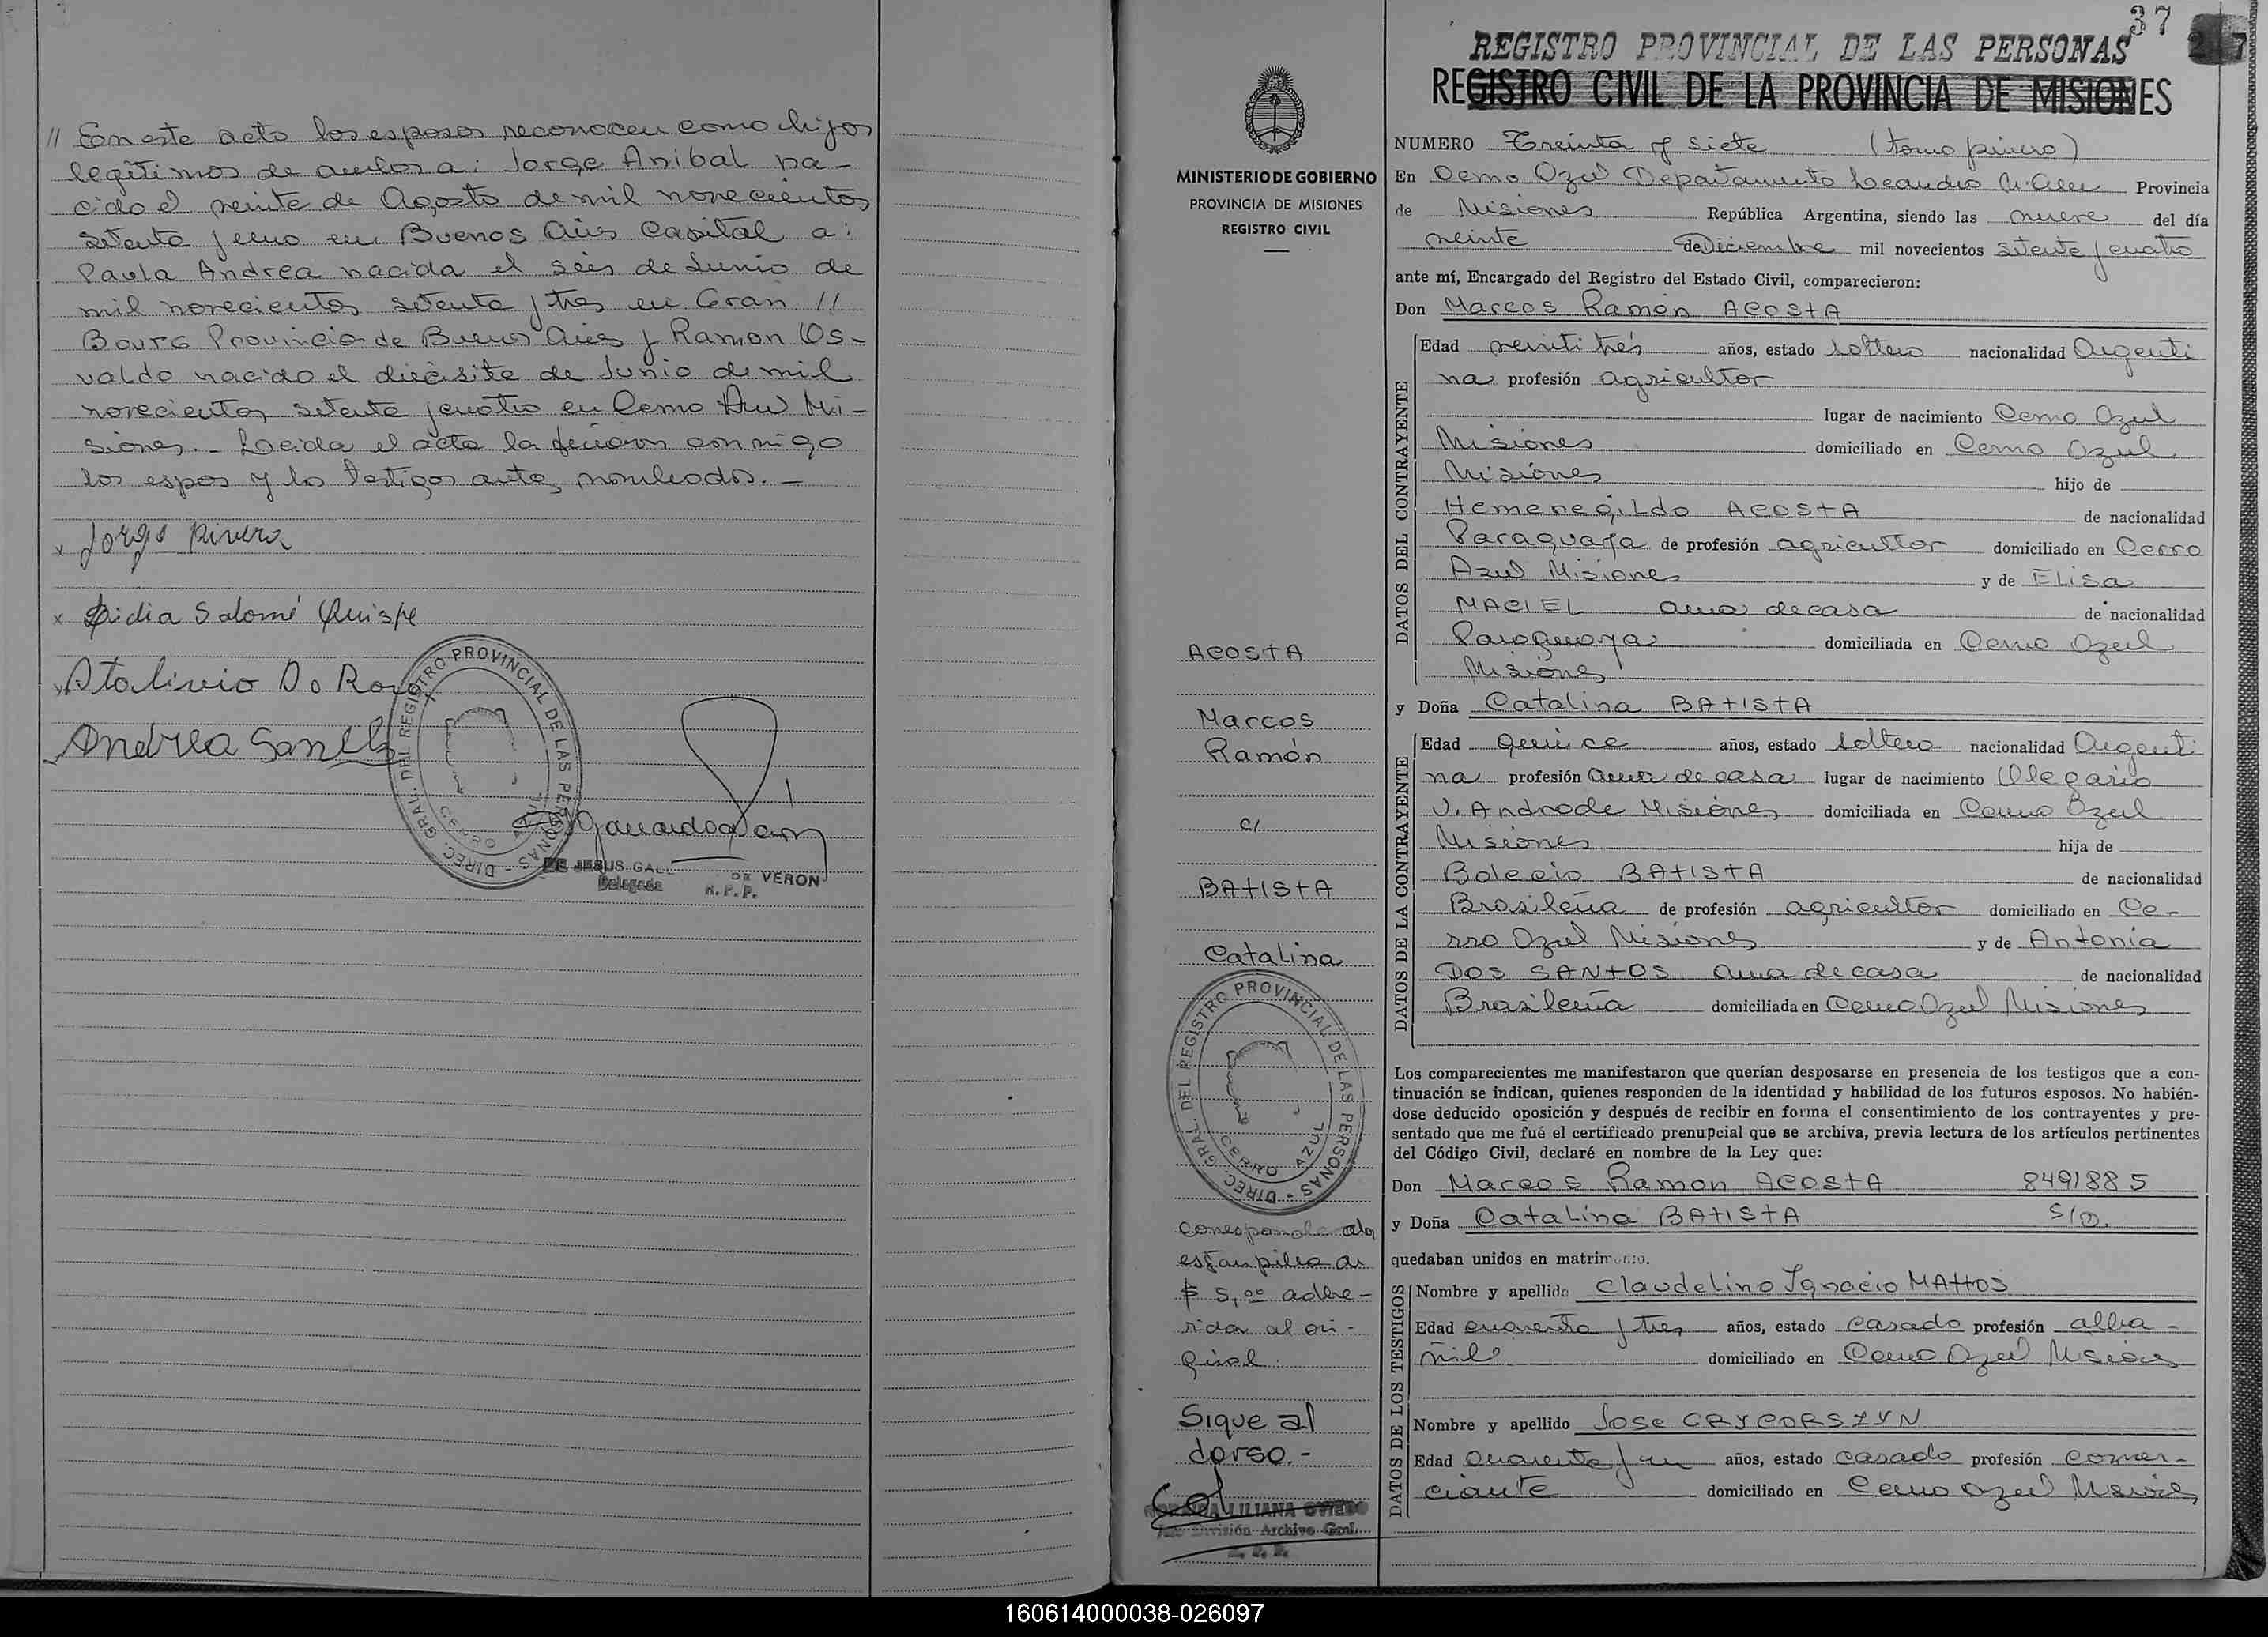 // En este acto los esposos reconocen como hijos
legítimos de ambos a: Jorge Anibal na-
cido el veinte de Agosto de mil novecientos
setenta y uno en Buenos Aires Capital a:
Paula Andrea nacida el seis de Junio de
mil novecientos setenta y tres en Gran //
Bourg Provincia de Buenos Aires y Ramon Os-
valdo nacido el diecisite de Junio de mil
novecientos setenta y cuatro en Cerro Azul Mi-
siones.- Leida el acta la firman conmigo
los espos y los testigos antes nombrados.-
x Jorge Rivero
x Lidia Salomé Quispe
x Atalivio Do Ro
Andrea
DIREC. GRAL. DEL REGISTRO PROVINCIAL DE LAS PERSONAS -
CERRO AZUL
DE JESUS GAL DE VERON
Delegada R. P. P.
37
REGISTRO PROVINCIAL DE LAS PERSONAS
REGISTRO CIVIL DE LA PROVINCIA DE MISIONES
MINISTERIO DE GOBIERNO
PROVINCIA DE MISIONES
REGISTRO CIVIL
ACOSTA
Marcos
Ramón
c/
BATISTA
Catalina
DIREC. GRAL. DEL REGISTRO PROVINCIAL DE LAS PERSONAS -
CERRO AZUL
Corresponde
estampilla de
$ 5,00 adhe-
rida al ori-
ginal.
Sigue al
dorso.-
LILIANA OVIEDO
División Archivo Gral.
R. P. P.
NUMERO Treinta y siete (tomo primero)
En Cerro Azul Departamento Leandro N. Alem Provincia
de Misiones República Argentina, siendo las nueve del día
veinte de Diciembre mil novecientos setenta y cuatro
ante mí, Encargado del Registro del Estado Civil, comparecieron:
Don Marcos Ramón ACOSTA
DATOS DEL CONTRAYENTE
Edad veintitrés años, estado soltero nacionalidad Argenti
na profesión agricultor
lugar de nacimiento Cerro Azul
Misiones domiciliado en Cerro Azul
Misiones hijo de
Hemenegildo ACOSTA de nacionalidad
Paraguaya de profesión agricultor domiciliado en Cerro
Azul Misiones y de Elisa
MACIEL ama de casa de nacionalidad
Paraguaya domiciliada en Cerro Azul
Misiones
y Doña Catalina BATISTA
DATOS DE LA CONTRAYENTE
Edad quince años, estado soltera nacionalidad Argenti
na profesión ama de casa lugar de nacimiento Olegario
V. Andrade Misiones domiciliada en Cerro Azul
Misiones hija de
Bolecio BATISTA de nacionalidad
Brasileña de profesión agricultor domiciliado en Ce-
rro Azul Misiones y de Antonia
DOS SANTOS ama de casa de nacionalidad
Brasileña domiciliada en Cerro Azul Misiones
Los comparecientes me manifestaron que querían desposarse en presencia de los testigos que a con-
tinuación se indican, quienes responden de la identidad y habilidad de los futuros esposos. No habién-
dose deducido oposición y después de recibir en forma el consentimiento de los contrayentes y pre-
sentado que me fué el certificado prenupcial que se archiva, previa lectura de los artículos pertinentes
del Código Civil, declaré en nombre de la Ley que:
Don Marcos Ramon ACOSTA 8491885
y Doña Catalina BATISTA S/D.
quedaban unidos en matrimonio.
DATOS DE LOS TESTIGOS
Nombre y apellido Claudelino Ignacio MATTOS
Edad cuarenta y tres años, estado casado profesión alba-
ñil domiciliado en Cerro Azul Misiones
Nombre y apellido Jose CRYCORSZYN
Edad cuarenta y un años, estado casado profesión comer-
ciante domiciliado en Cerro Azul Misiones
160614000038-026097